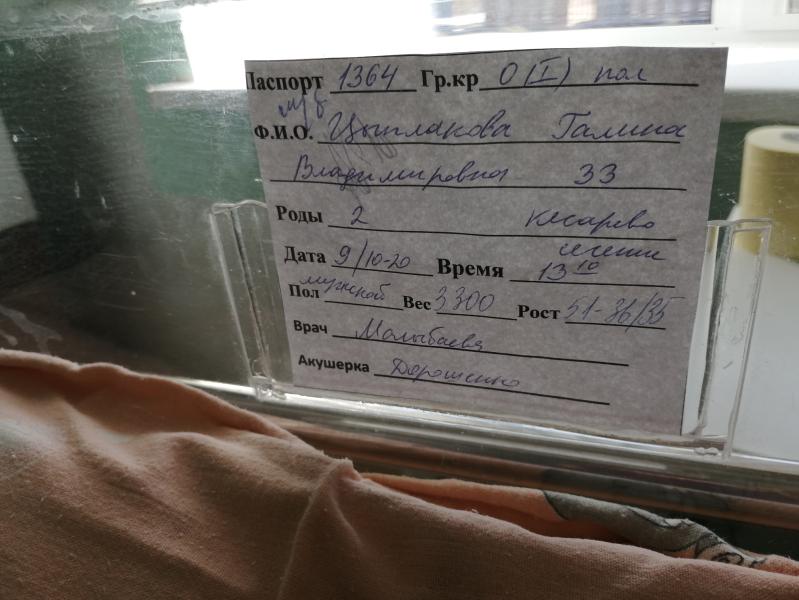 Паспорт 1364 Гр.кр O(I) пол
Ф.И.О. Цыплакова Галина
Владимировна 33
Роды 2 кесарево
сечение
Дата 9/10-20 Время 13 10
Пол мужской Вес 3300 Рост 51-36/35
Врач Малыбаева
Акушерка Дорошенко